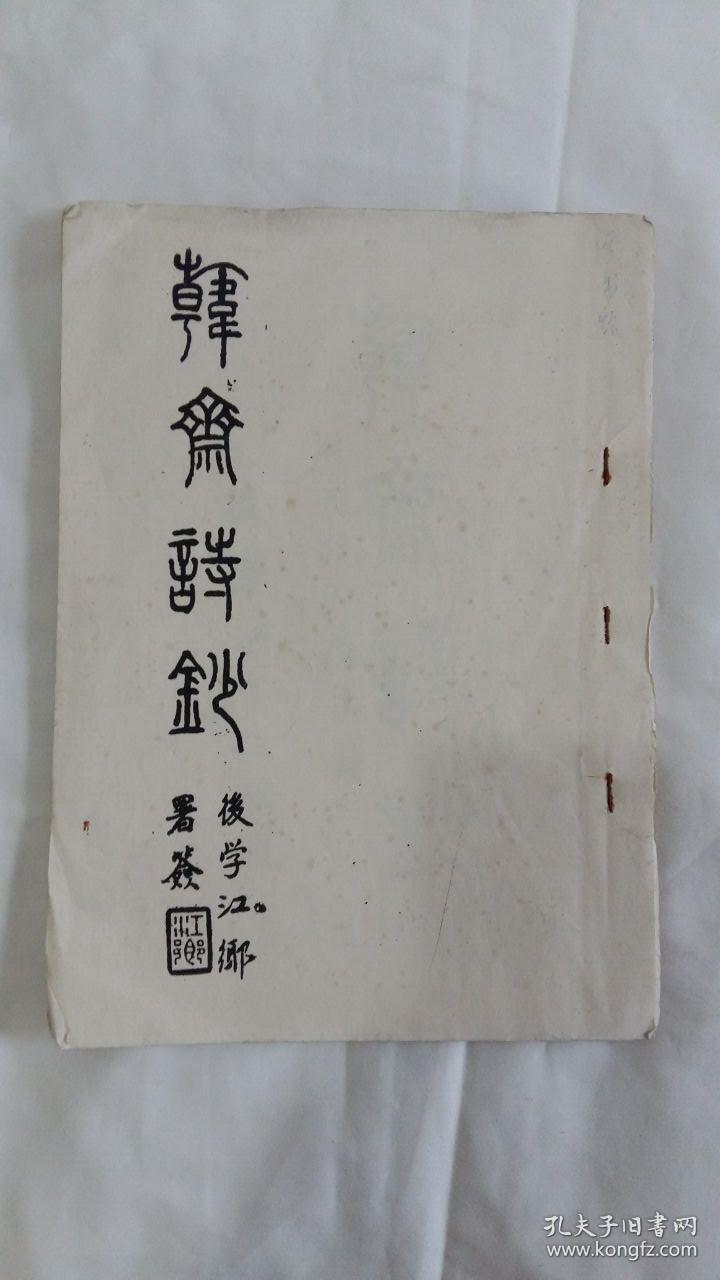 韓齋詩鈔
後学江鄉
署簽
江鄉
孔夫子旧書网
www.kongfz.com